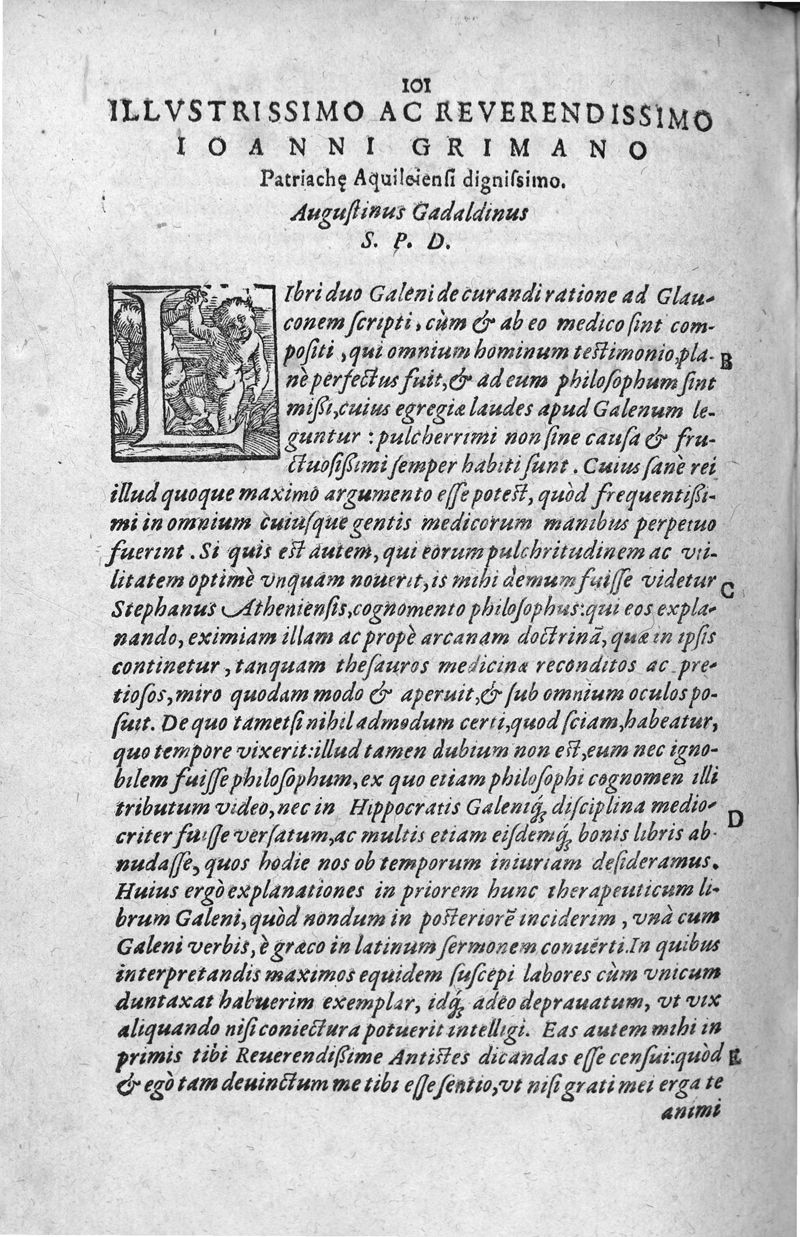 101
ILLVSTRISSIMO AC REVERENDISSIMO
IOANNI GRIMANO
Patriachę Aquileiensi dignissimo.
Augustinus Gadaldinus
S. P. D.
LIbri duo Galeni de curandi ratione ad Glau-
conem scripti, cùm & ab eo medico sint com-
positi, qui omnium hominum testimonio, pla-
B
nè perfectus fuit, & ad eum philosophum sint
missi, cuius egregiæ laudes apud Galenum le-
guntur: pulcherrimi non sine causa & fru-
ctuosissimi semper habiti sunt. Cuius sanè rei
illud quoque maximo argumento esse potest, quòd frequentissi-
mi in omnium cuiusque gentis medicorum manibus perpetuo
fuerint. Si quis est autem, qui eorum pulchritudinem ac vti-
litatem optimè vnquam nouerit, is mihi demum fuisse videtur
C
Stephanus Atheniensis, cognomento philosophus: qui eos expla-
nando, eximiam illam ac propè arcanam doctrinã, quæ in ipsis
continetur, tanquam thesauros medicinæ reconditos ac pre-
tiosos, miro quodam modo & aperuit, & sub omnium oculos po-
suit. De quo tametsi nihil admodum certi, quod sciam, habeatur,
quo tempore vixerit: illud tamen dubium non est, eum nec igno-
bilem fuisse philosophum, ex quo etiam philosophi cognomen illi
tributum video, nec in Hippocratis Galeniq́; disciplina medio-
D
criter fuisse versatum, ac multis etiam eisdemq́; bonis libris ab-
nudasse, quos hodie nos ob temporum iniuriam desideramus.
Huius ergò explanationes in priorem hunc therapeuticum li-
brum Galeni, quòd nondum in posteriorẽ inciderim, vnà cum
Galeni verbis, è græco in latinum sermonem conuérti. In quibus
interpretandis maximos equidem suscepi labores cùm vnicum
duntaxat habuerim exemplar, idq́; adeo deprauatum, vt vix
aliquando nisi coniectura potuerit intelligi. Eas autem mihi in
primis tibi Reuerendissime Antistes dicandas esse censui: quòd
E
& egò tam deuinctum me tibi esse sentio, vt nisi grati mei erga te
animi